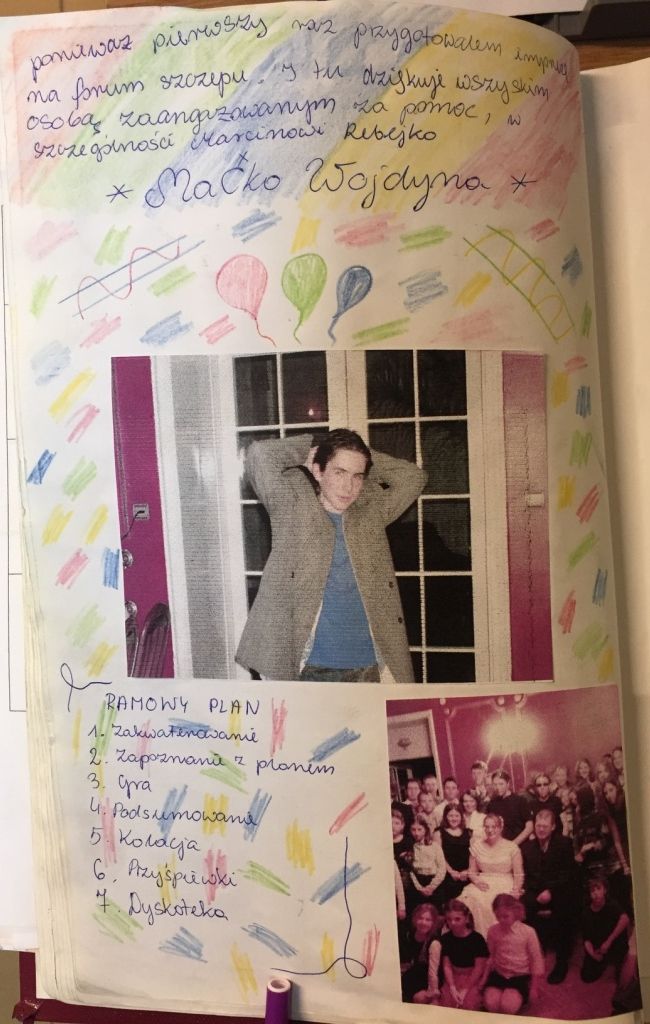 ponieważ pierwszy raz przygotowałem imprezę
na forum szczepu. I tu dziękuję wszyskim
osobą zaangażowanym za pomoc, w
szczególności Marcinowi Rebejko
* Maćko Wojdyna *
RAMOWY PLAN
1. Zakwaterowanie
2. Zapoznanie z planem
3. Gra
4. Podsumowanie
5. Kolacja
6. Przyśpiewki
7. Dyskoteka